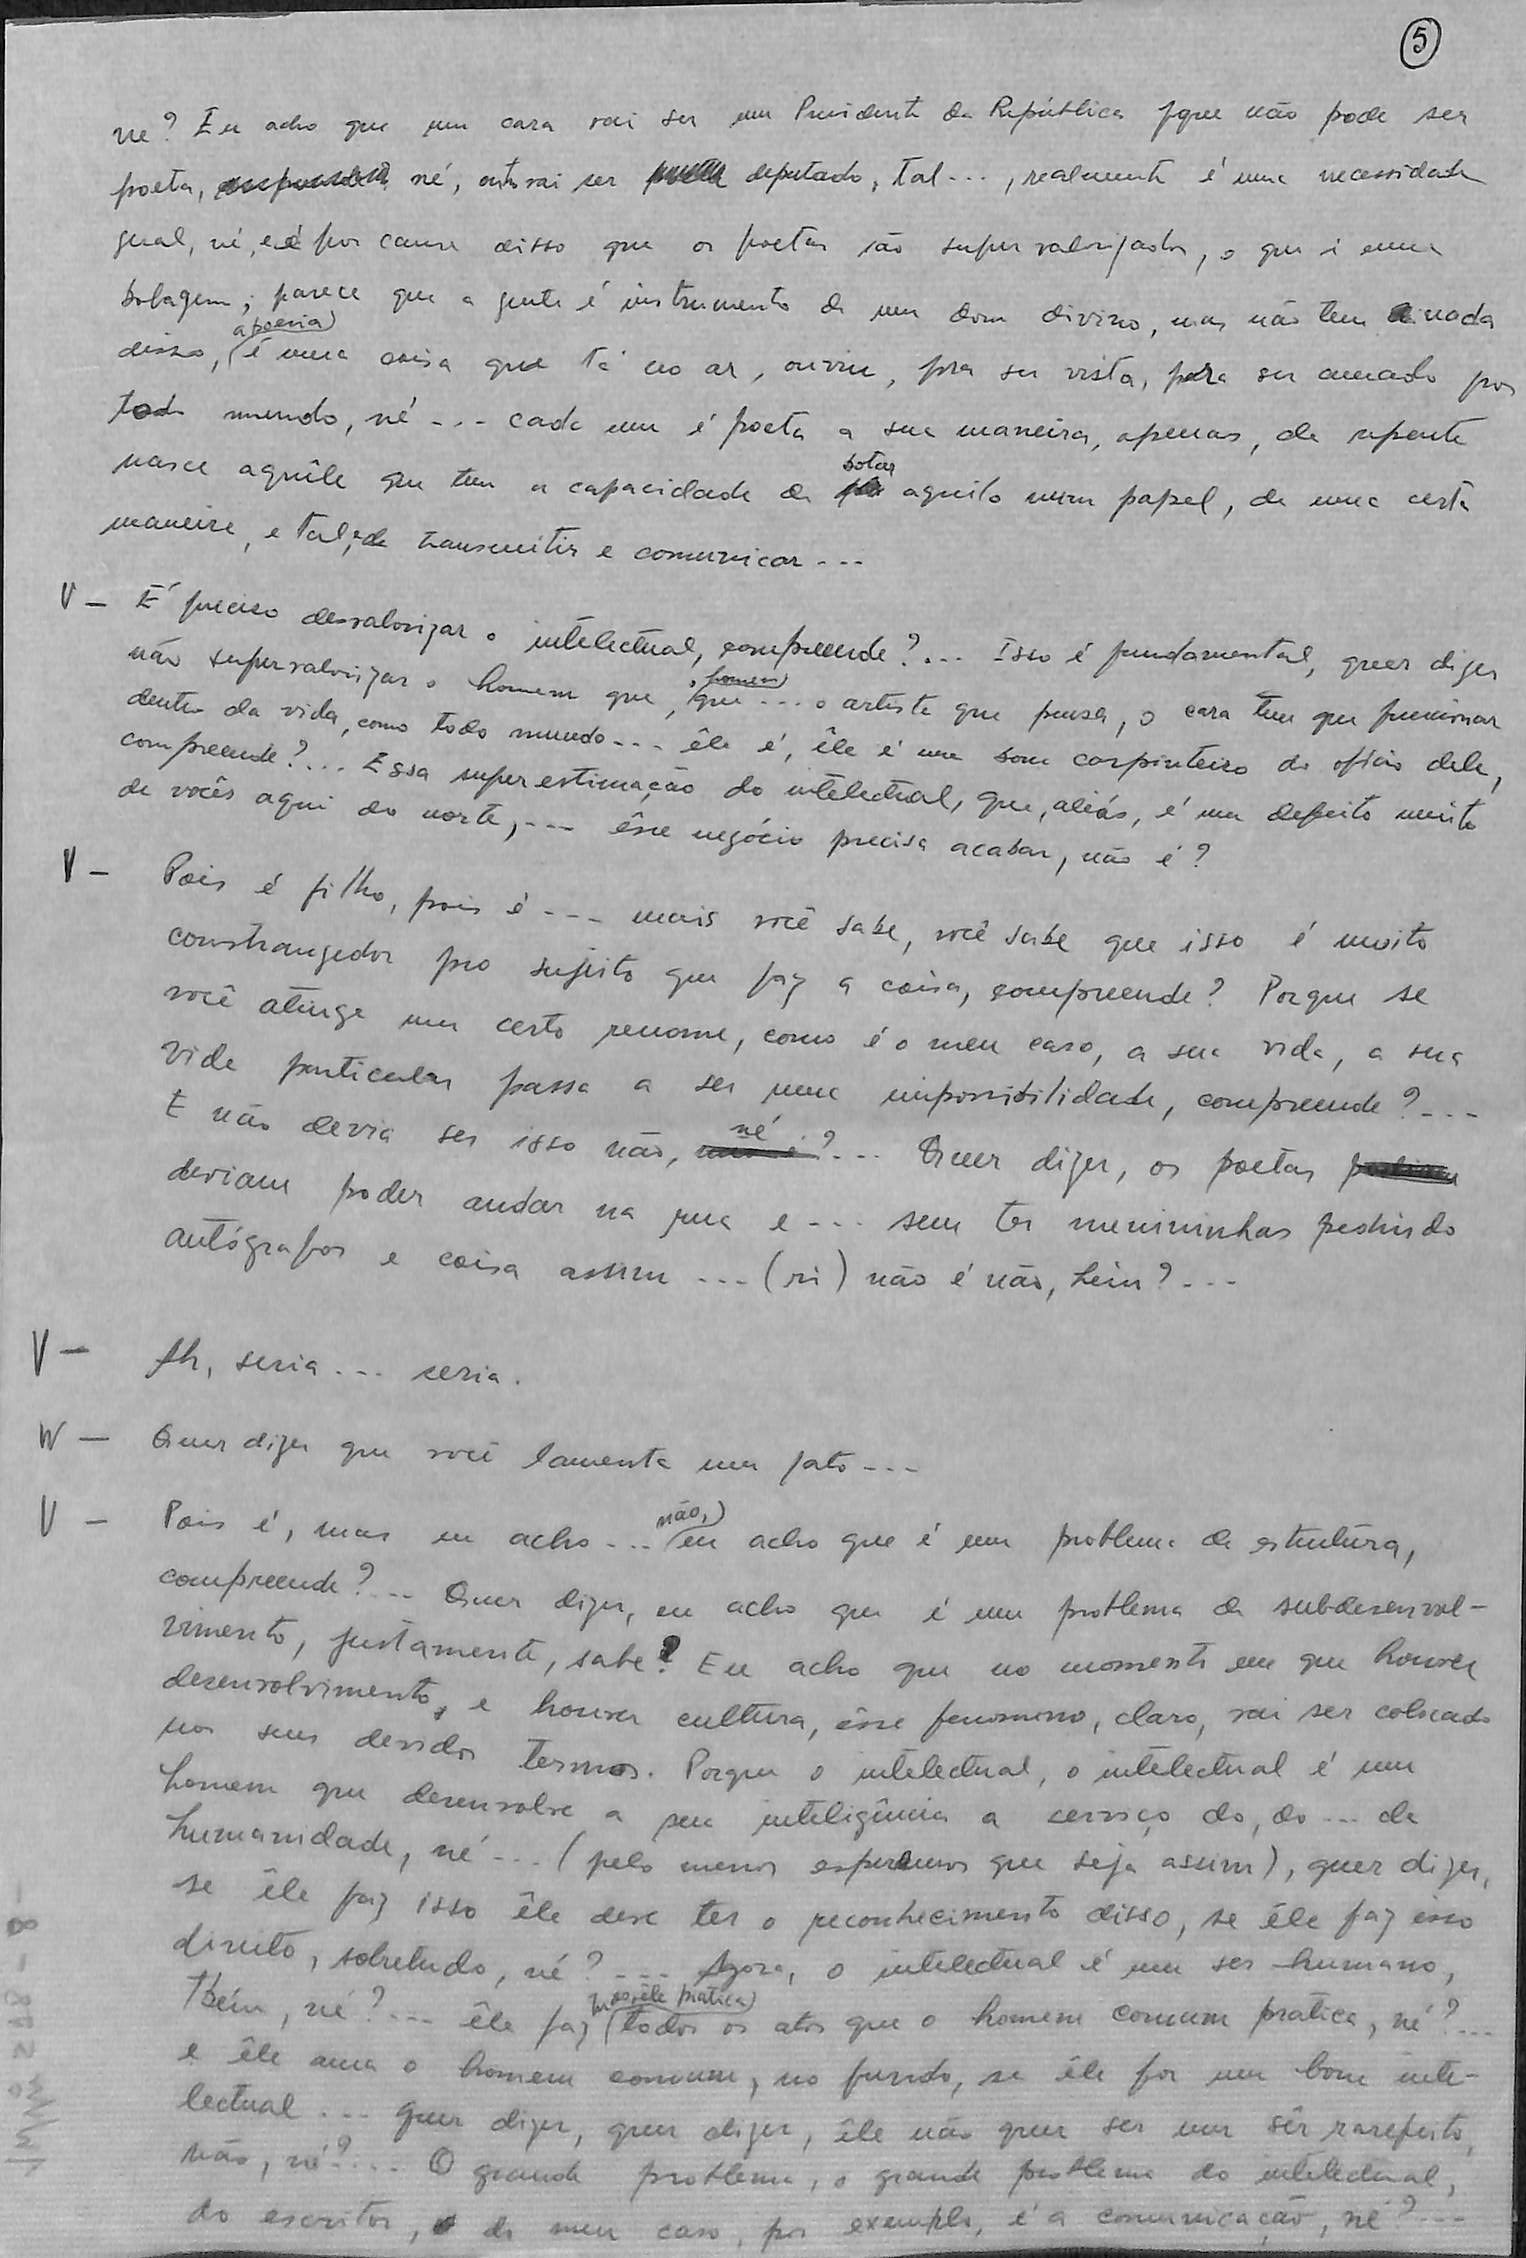 5
né? Eu acho que um cara vai ser um Presidente da República pque não pode ser
poeta, né, outro vai ser deputado, tal ..., realmente é uma necessidade
geral, né, e é por causa disso que os poetas são supervalorizados, o que é uma
bobagem; parece que a gente é instrumento de um dom divino, mas não tem nada
disso, (a poesia) é uma coisa que tá no ar, ouviu, pra ser vista, pra ser amado por
todo mundo, né ... cada um é poeta a sua maneira, apenas, de repente
nasce aquêle que tem a capacidade de botar aquilo num papel, de uma certa
maneira, e tal, e de transmitir e comunicar ...
V - É preciso desvalorizar o intelectual, compreende? ... Isso é fundamental, quer dizer
não supervalorizar o homem que, o homem que ... o artista que pensa, o cara tem que funcionar
dentro da vida, como todo mundo ... êle é, êle é um bom carpinteiro do ofício dele,
compreende? ... Essa superestimação do intelectual, que, aliás, é um defeito muito
de vocês aqui do norte, ... êsse negócio precisa acabar, não é?
V - Pois é filho, pois é ... mais você sabe, você sabe que isso é muito
constrangedor pro sujeito que faz a coisa, compreende? Porque se
você atinge um certo renome, como é o meu caso, a sua vida, a sua
vida particular passa a ser uma impossibilidade, compreende? ...
E não devia ser isso não, né? ... Quer dizer, os poetas
deviam poder andar na rua e ... sem ter menininhas pedindo
autógrafos e coisa assim ... (ri) não é não, hein? ...
V - Ah, seria ... seria.
W - Quer dizer que você lamenta um fato ...
V - Pois é, mas eu acho ... não, eu acho que é um problema de estrutura,
compreende? ... Quer dizer, eu acho que é um problema de subdesenvol-
vimento, justamente, sabe? Eu acho que no momento em que houver
desenvolvimento, e houver cultura, êsse fenomeno, claro, vai ser colocado
nos seus devidos termos. Porque o intelectual, o intelectual é um
homem que desenvolve a sua inteligência a serviço do, do ... da
humanidade, né ... (pelo menos esperemos que seja assim), quer dizer,
se êle faz isso êle deve ter o reconhecimento disso, se êle faz isso
direito, sobretudo, né? ... Agora, o intelectual é um ser humano,
tbém, né? ... êle faz, êle pratica todos os atos que o homem comum pratica, né? ...
e êle ama o homem comum, no fundo, se êle for um bom inte-
lectual ... quer dizer, quer dizer, êle não quer ser um sêr rarefeito,
não, né? ... O grande problema, o grande problema do intelectual,
do escritor, do meu caso, por exemplo, é a comunicação, né? ...